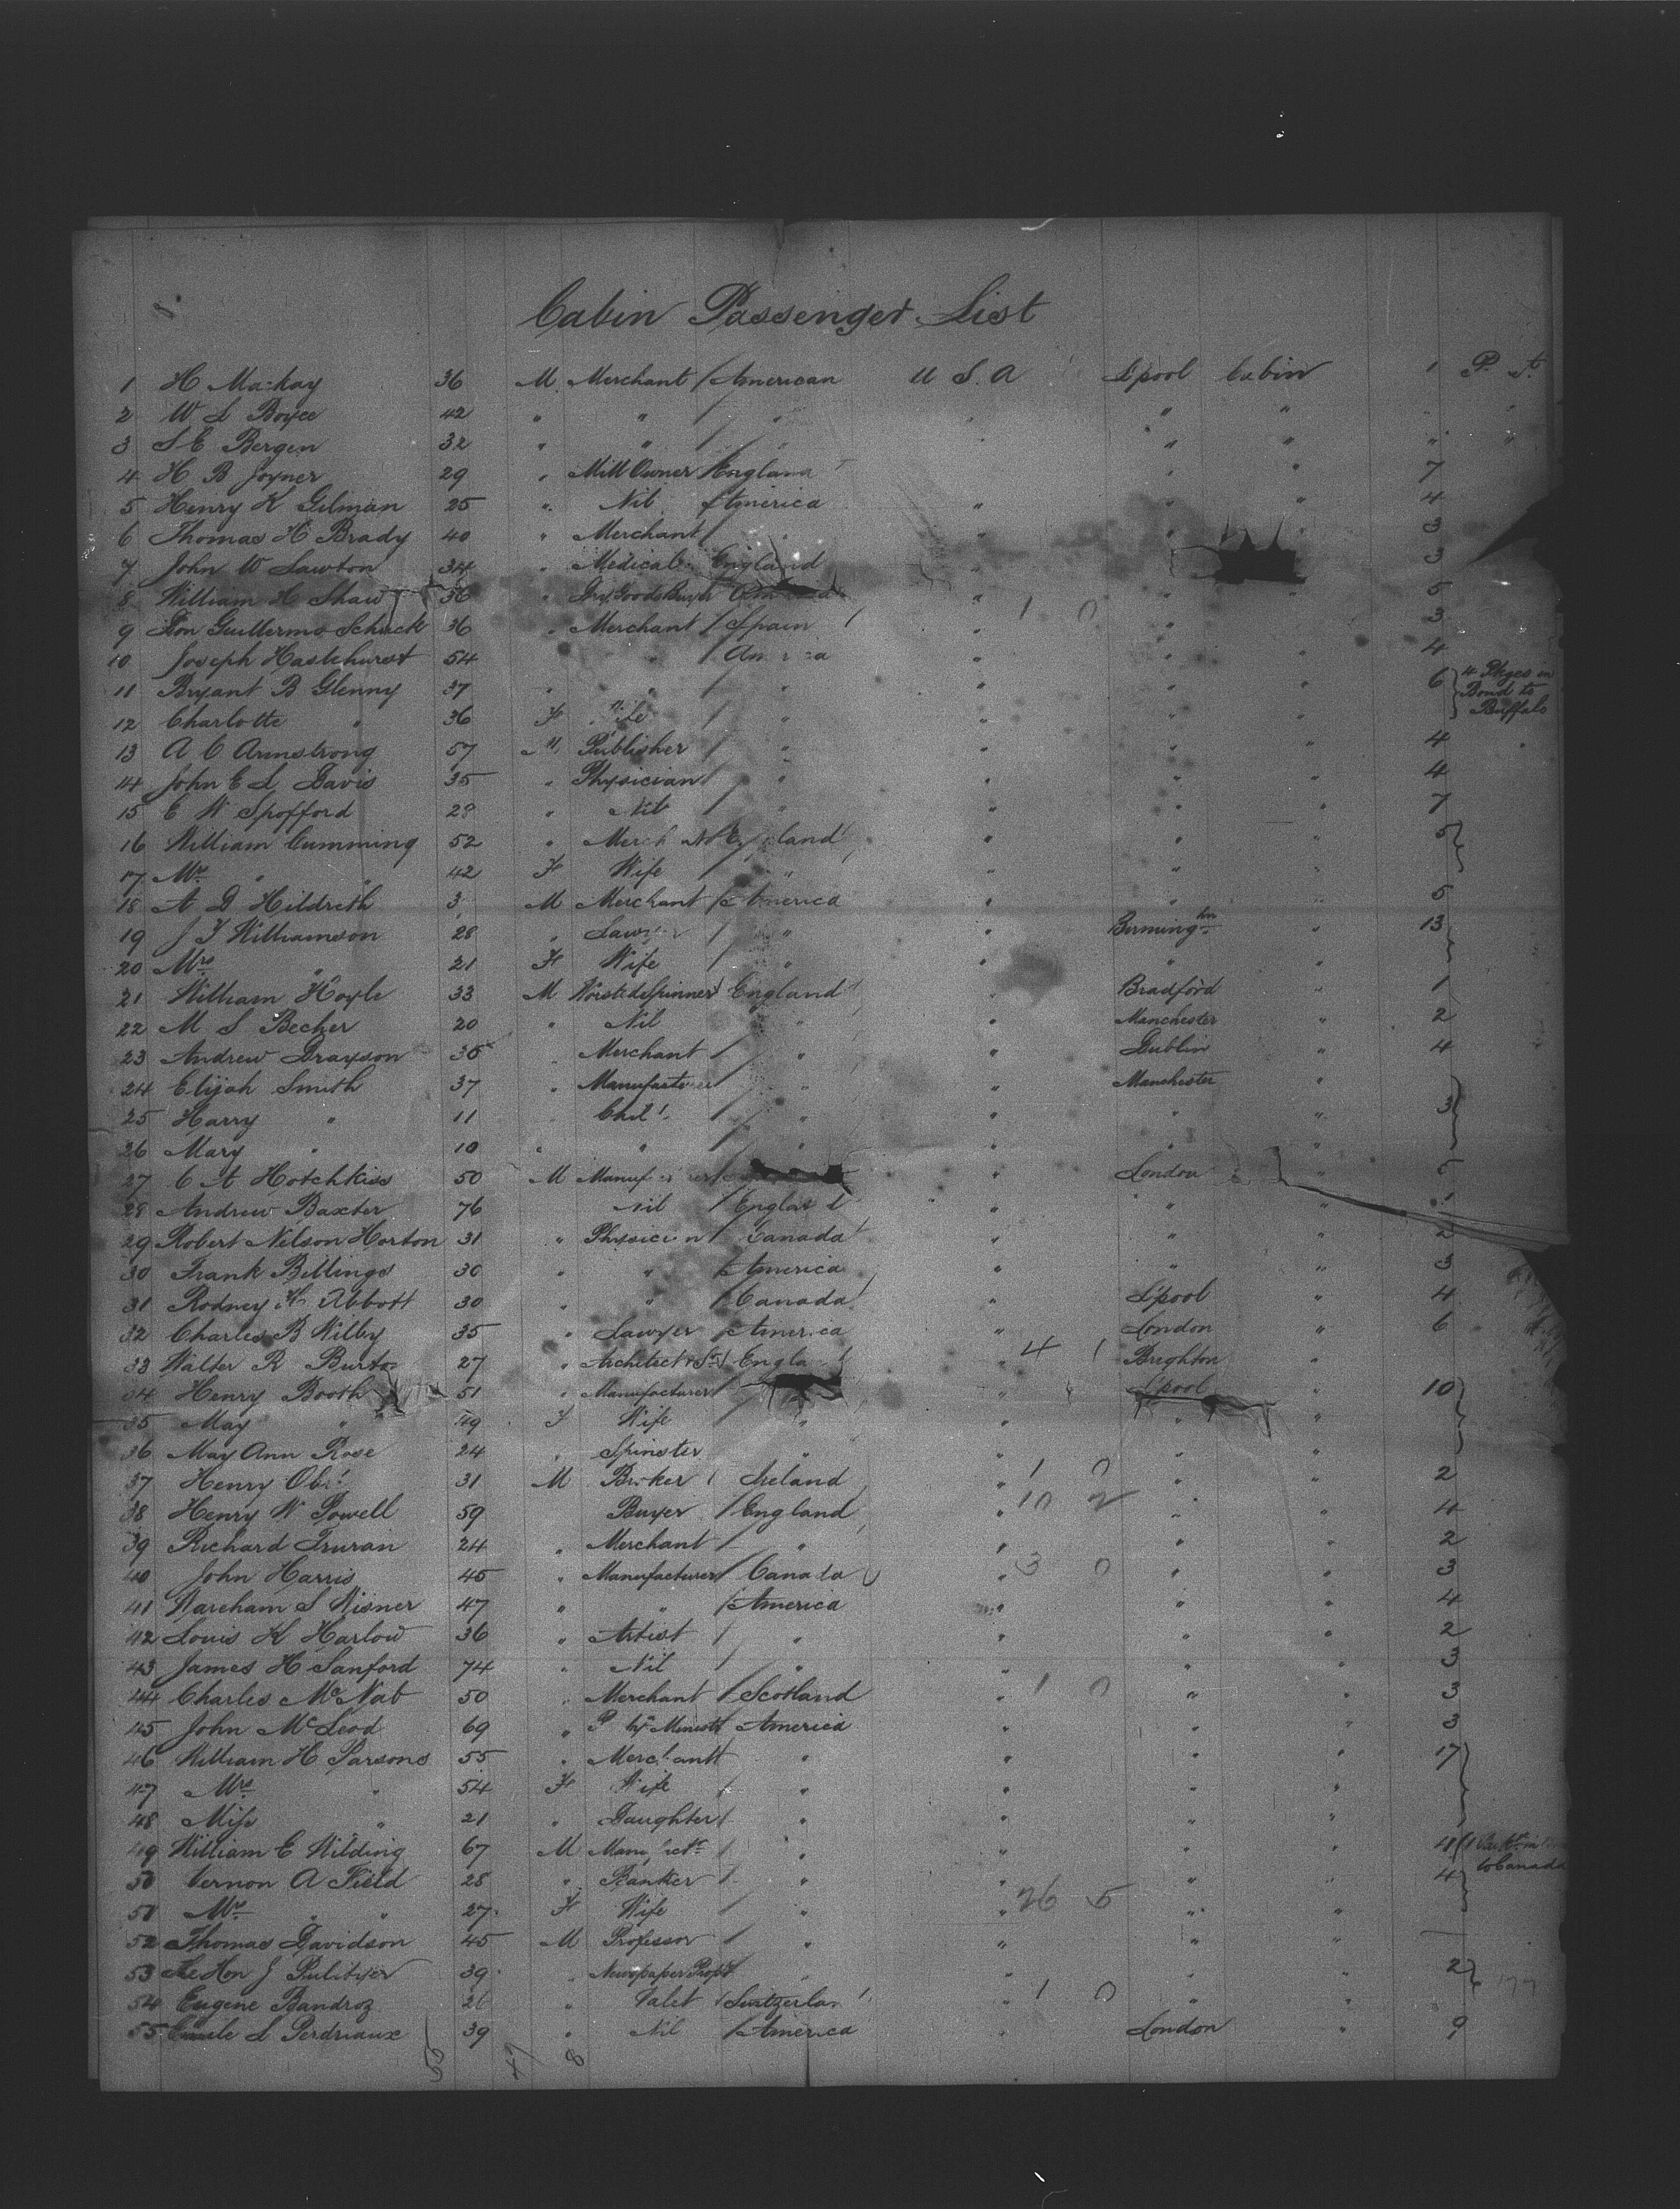 Cabin Passenger List
1 H Mackay 36 M Merchant / American U S A L'pool Cabin 1
2 W L Boyce 42 " " / " " " " "
3 S E Bergen 32 " " / " " " " "
4 H B Joyner 29 " Mill Owner / England " " 7
5 Henry K Gilman 25 " Nil / America " " " 4
6 Thomas H Brady 40 " Merchant / " " " " 3
7 John W Lawton 34 " Medical England 3
8 William H Shaw 36 " Dry Goods Buyer " " " 5
9 Don Guillermo Schuck 36 " Merchant / Spain / " 1 0 " 3
10 Joseph Haslehurst 54 " / America " " " 4
11 Bryant B Glenny 37 " " / " " " " 6 } 4 Pkges in
Bond to
Buffalo
12 Charlotte " 36 F Wife / " " " "
13 A C Armstrong 57 M Publisher / " " " " 4
14 John E L Davis 35 " Physician / " " " " 4
15 E W Spofford 28 " Nil / " " " " 7
16 William Cumming 52 " England " " " 5 }
17 Mrs " 42 F Wife " " " "
18 A D Hildreth 3 M Merchant / America " " " 5
19 J T Williamson 28 " Lawyer / " " Birming hm " 13 }
20 Mrs " 21 F Wife / " " " "
21 William Hoyle 33 M Worsted Spinner England " Bradford " 1
22 M S Becher 20 " Nil " " Manchester " 2
23 Andrew Grayson 35 " Merchant / " " Dublin " 4
24 Elijah Smith 37 " Manufacturer / " " Manchester "
25 Harry " 11 Child / " " " " 3 }
26 Mary " 10 " " / " " " "
27 C A Hotchkiss 50 M Manufacturer " London "
28 Andrew Baxter 76 Nil / England " " " 1
29 Robert Nelson Horton 31 " Physician / Canada " " " 2
30 Frank Billings 30 " " / America " " " 3
31 Rodney H Abbott 30 " " / Canada " L'pool " 4
32 Charles B Wilby 35 " Lawyer / America London " 6
33 Walter R Burton 27 " Architect England " 4 1 Brighton "
34 Henry Booth 51 " Manufacturer / " L'pool " 10 }
35 May " 49 F Wife / " " " "
36 May Ann Rose 24 " Spinster " " " "
37 Henry 31 M Broker / Ireland " 1 0 " " 2
38 Henry W Powell 59 Buyer / England " 10 2 " " 4
39 Richard Truran 24 " Merchant / " " " " 2
40 John Harris 45 " Manufacturer / Canada " 3 0 " " 3
41 Wareham S Wisner 47 " " / America " " " 4
42 Louis K Harlow 36 " Artist / " " " " 2
43 James H Sanford 74 " Nil / " " " " 3
44 Charles McNab 50 " Merchant / Scotland " 1 0 " " 3
45 John McLeod 69 " America " " " 3
46 William H Parsons 55 " Merchant / " " " " 17 }
47 Mrs " 54 F Wife / " " " "
48 Miss " 21 " Daughter / " " " "
49 William E Wilding 67 M / " " " " 4
to Canada
50 Vernon A Field 28 " Banker / " " " " 4 }
51 Mrs " " 27 F Wife / " " 26 5 " "
52 Thomas Davidson 45 M Professor / " " " " —
53 The Hon J Pulitzer 39 " Newspaper Propr / " " " " 2 }
54 Eugene Bandroz 26 " Valet / Switzerland / " 1 0 " "
55 Emile L Perdriaux 39 " Nil / America " London " 9
47 8